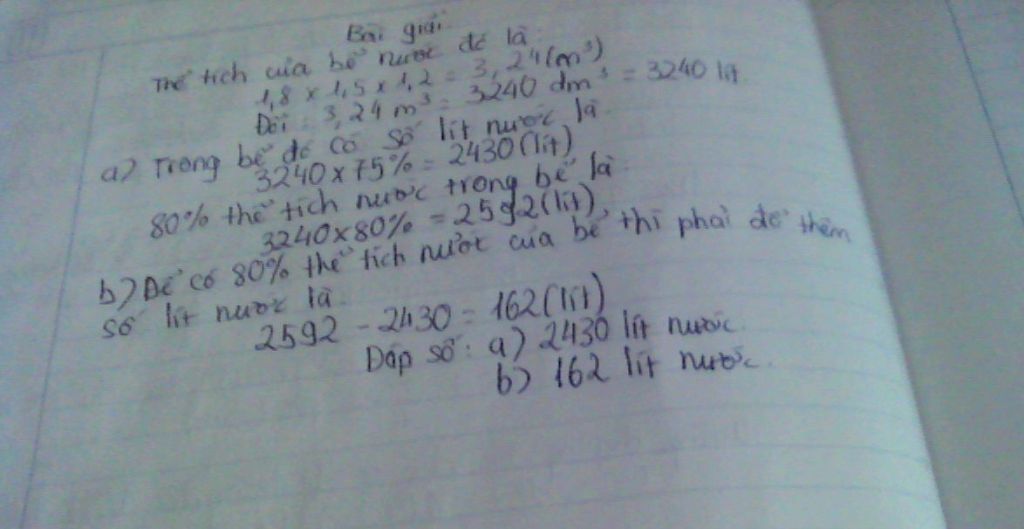 Bài giải
Thể tích của bể nước đó là:
1,8 x 1,5 x 1,2 = 3,24 (m³)
Đổi : 3,24 m³ = 3240 dm³ = 3240 lít
a) Trong bể đó có số lít nước là
3240 x 75% = 2430 (lít)
80% thể tích nước trong bể là
3240 x 80% = 2592 (lít)
b) Để có 80% thể tích nước của bể thì phải đổ thêm
số lít nước là
2592 - 2430 = 162 (lít)
Đáp số : a) 2430 lít nước.
b) 162 lít nước.